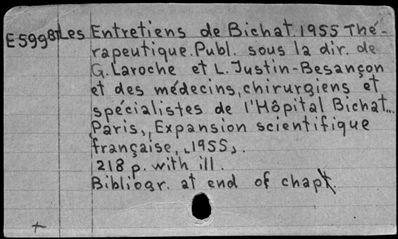 E5998 Les Entretiens de Bichat. 1955 Thé-
rapeutique. Publ. sous la dir. de
G. Laroche et L. Justin-Besançon
et des médecins, chirurgiens et
spécialistes de l'Hôpital Bichat...
Paris, Expansion scientifique
française, [1955].
218 p. with ill.
Bibliogr. at end of chapt.